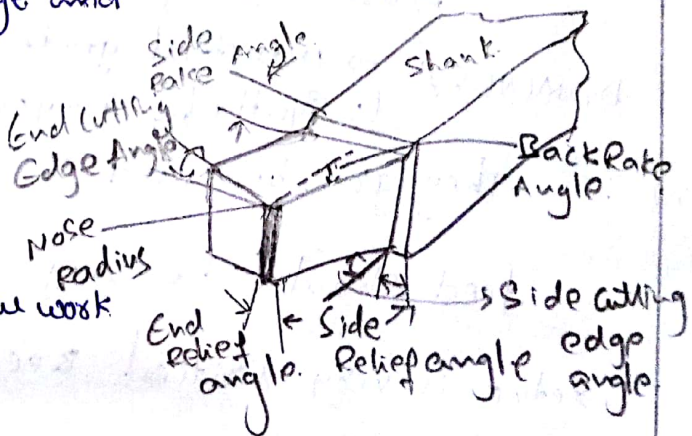 Side Rake Angle
Shank
End Cutting
Edge Angle
Back Rake
Angle
Nose
Radius
work
End
Relief
angle.
Side
Relief angle
Side cutting
edge
angle